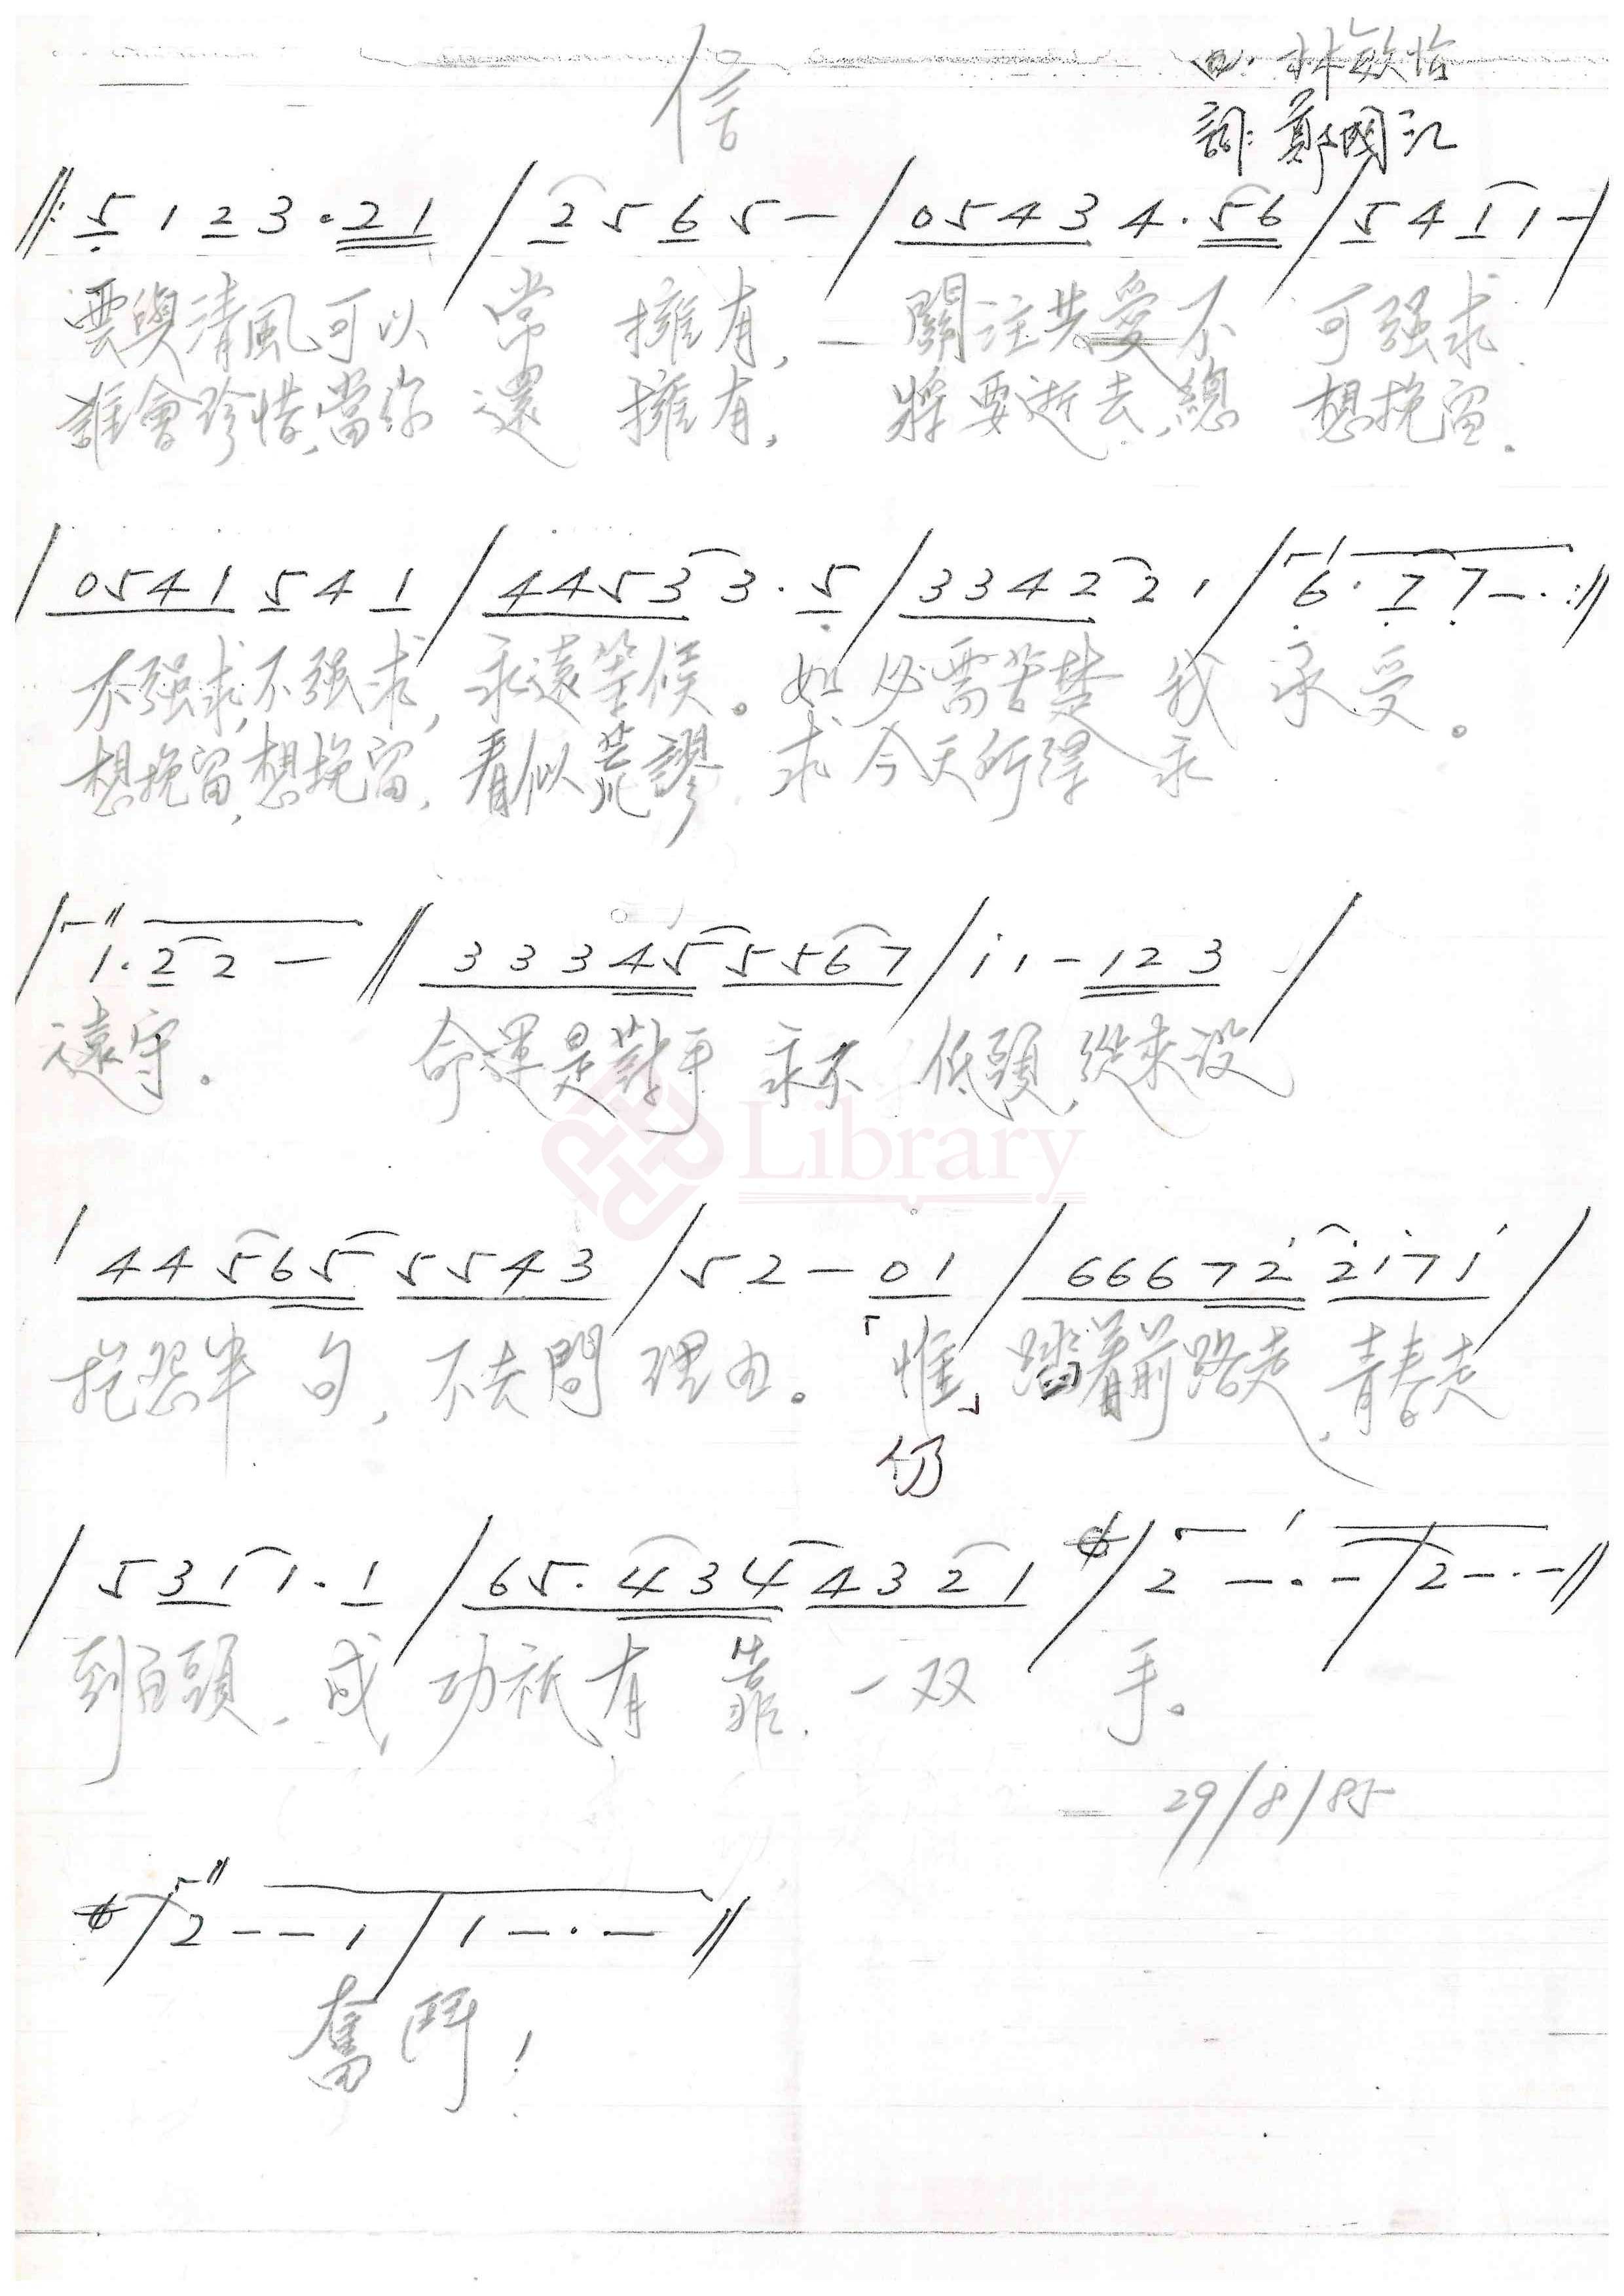 信
曲: 林敏怡
詞: 鄭國江
//: 5 1 2 3 · 2 1 / 2 5 6 5 – / 0 5 4 3 4 · 5 6 / 5 4 1 1 – /
雲與清風可以常擁有,–關注共愛不可强求.
誰會珍惜,當你還擁有,將要逝去,總想挽留.
/ 0 5 4 1 5 4 1 / 4 4 5 3 3 · 5 / 3 3 4 2 2 1 / 6 · 7 7 – · ://
不强求,不强求,永遠等候。如必需苦楚我承受。
想挽留,想挽留,看似荒謬.求今天所得永
/ 1 · 2 2 – // 3 3 3 4 5 5 5 6 7 / i 1 – 1 2 3 /
遠守。命運是對手永不低頭,從來没
/ 4 4 5 6 5 5 5 4 3 / 5 2 – 0 1 / 6 6 6 7 2 2 i 7 i /
抱怨半句,不去問理由。「惟」踏着前路走,青春走
仍
/ 5 3 1 1 · 1 / 6 5 · 4 3 4 4 3 2 1 / 2 – · – / 2 – · – //
到白頭,成功祇有靠.一双手。
29/8/85
/ 2 – – 1 / 1 – · – //
奮鬥!
Library